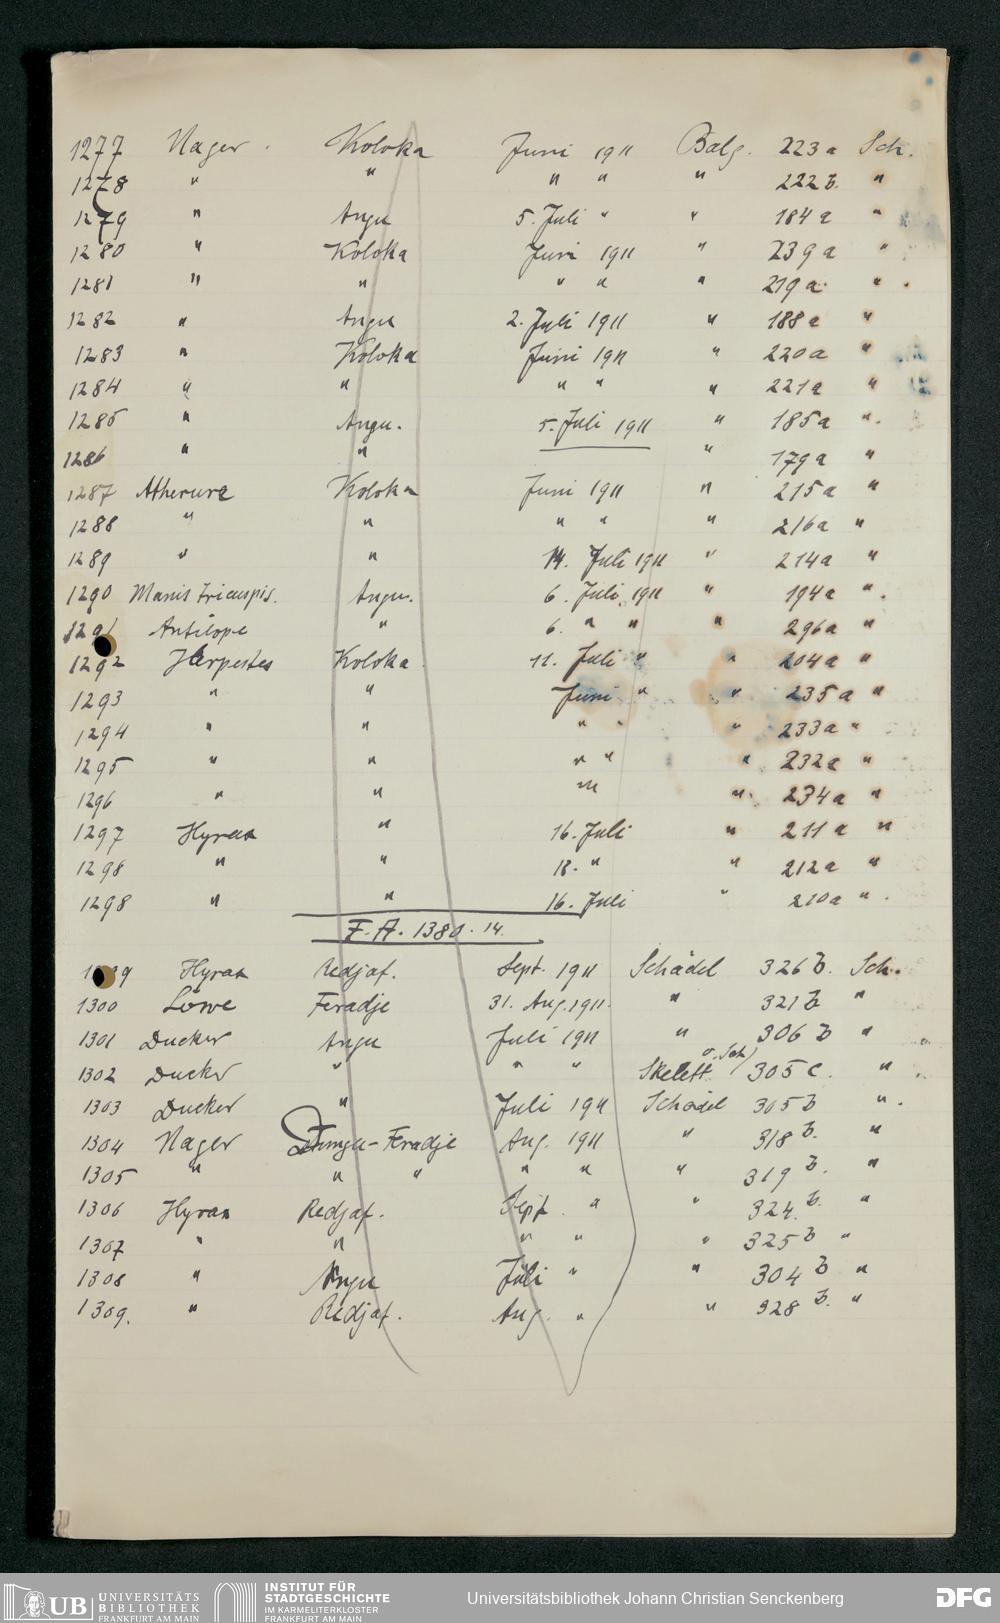 1277 Nager . Koloka Juni 1911 Balg. 223a Sch.
1278 " " " " " 222b. "
1279 " Angu 5. Juli " " 184a "
1280 " Koloka Juni 1911 " 239a "
1281 " " " " " 219a. "
1282 " Angu 2. Juli 1911 " 188a "
1283 " Koloka Juni 1911 " 220a "
1284 " " " " " 221a "
1285 " Angu. 5. Juli 1911 " 185a "
1286 " " " 179a "
1287 Atherure Koloka Juni 1911 " 215a "
1288 " " " " " 216a "
1289 " " 14. Juli 1911 " 214a "
1290 Manis tricuspis. Angu. 6. Juli 1911 " 194a "
1291 Antilope " 6. " " " 296a "
1292 Herpestes Koloka 11. Juli " " 204a "
1293 " " Juni " " 235a "
1294 " " " " " 233a "
1295 " " " " " 232a "
1296 " " " " 234a "
1297 Hyrax " 16. Juli " 211a "
1298 " " 18. " " 212a "
1298 " " 16. Juli " 210a "
F.A. 1380. 14.
Hyrax Redjaf. Sept. 1911 Schädel 326b. Sch.
1300 Löwe Feradje 31. Aug. 1911. " 321b "
1301 Ducker Angu Juli 1911 " 306b "
1302 Ducker " " " Skelett 305c. "
1303 Ducker " Juli 1911 Schädel 305b "
1304 Nager Dungu-Feradje Aug. 1911 " 318b. "
1305 " " " " " " 319b. "
1306 Hyrax Redjaf. Sept. " " 324.b. "
1307 " " " " " 325b "
1308 " Angu Juli " " 304b "
1309. " Redjaf. Aug. " " 328b. "
UB UNIVERSITÄTS
BIBLIOTHEK
FRANKFURT AM MAIN
INSTITUT FÜR
STADTGESCHICHTE
IM KARMELITERKLOSTER
FRANKFURT AM MAIN
Universitätsbibliothek Johann Christian Senckenberg
DFG